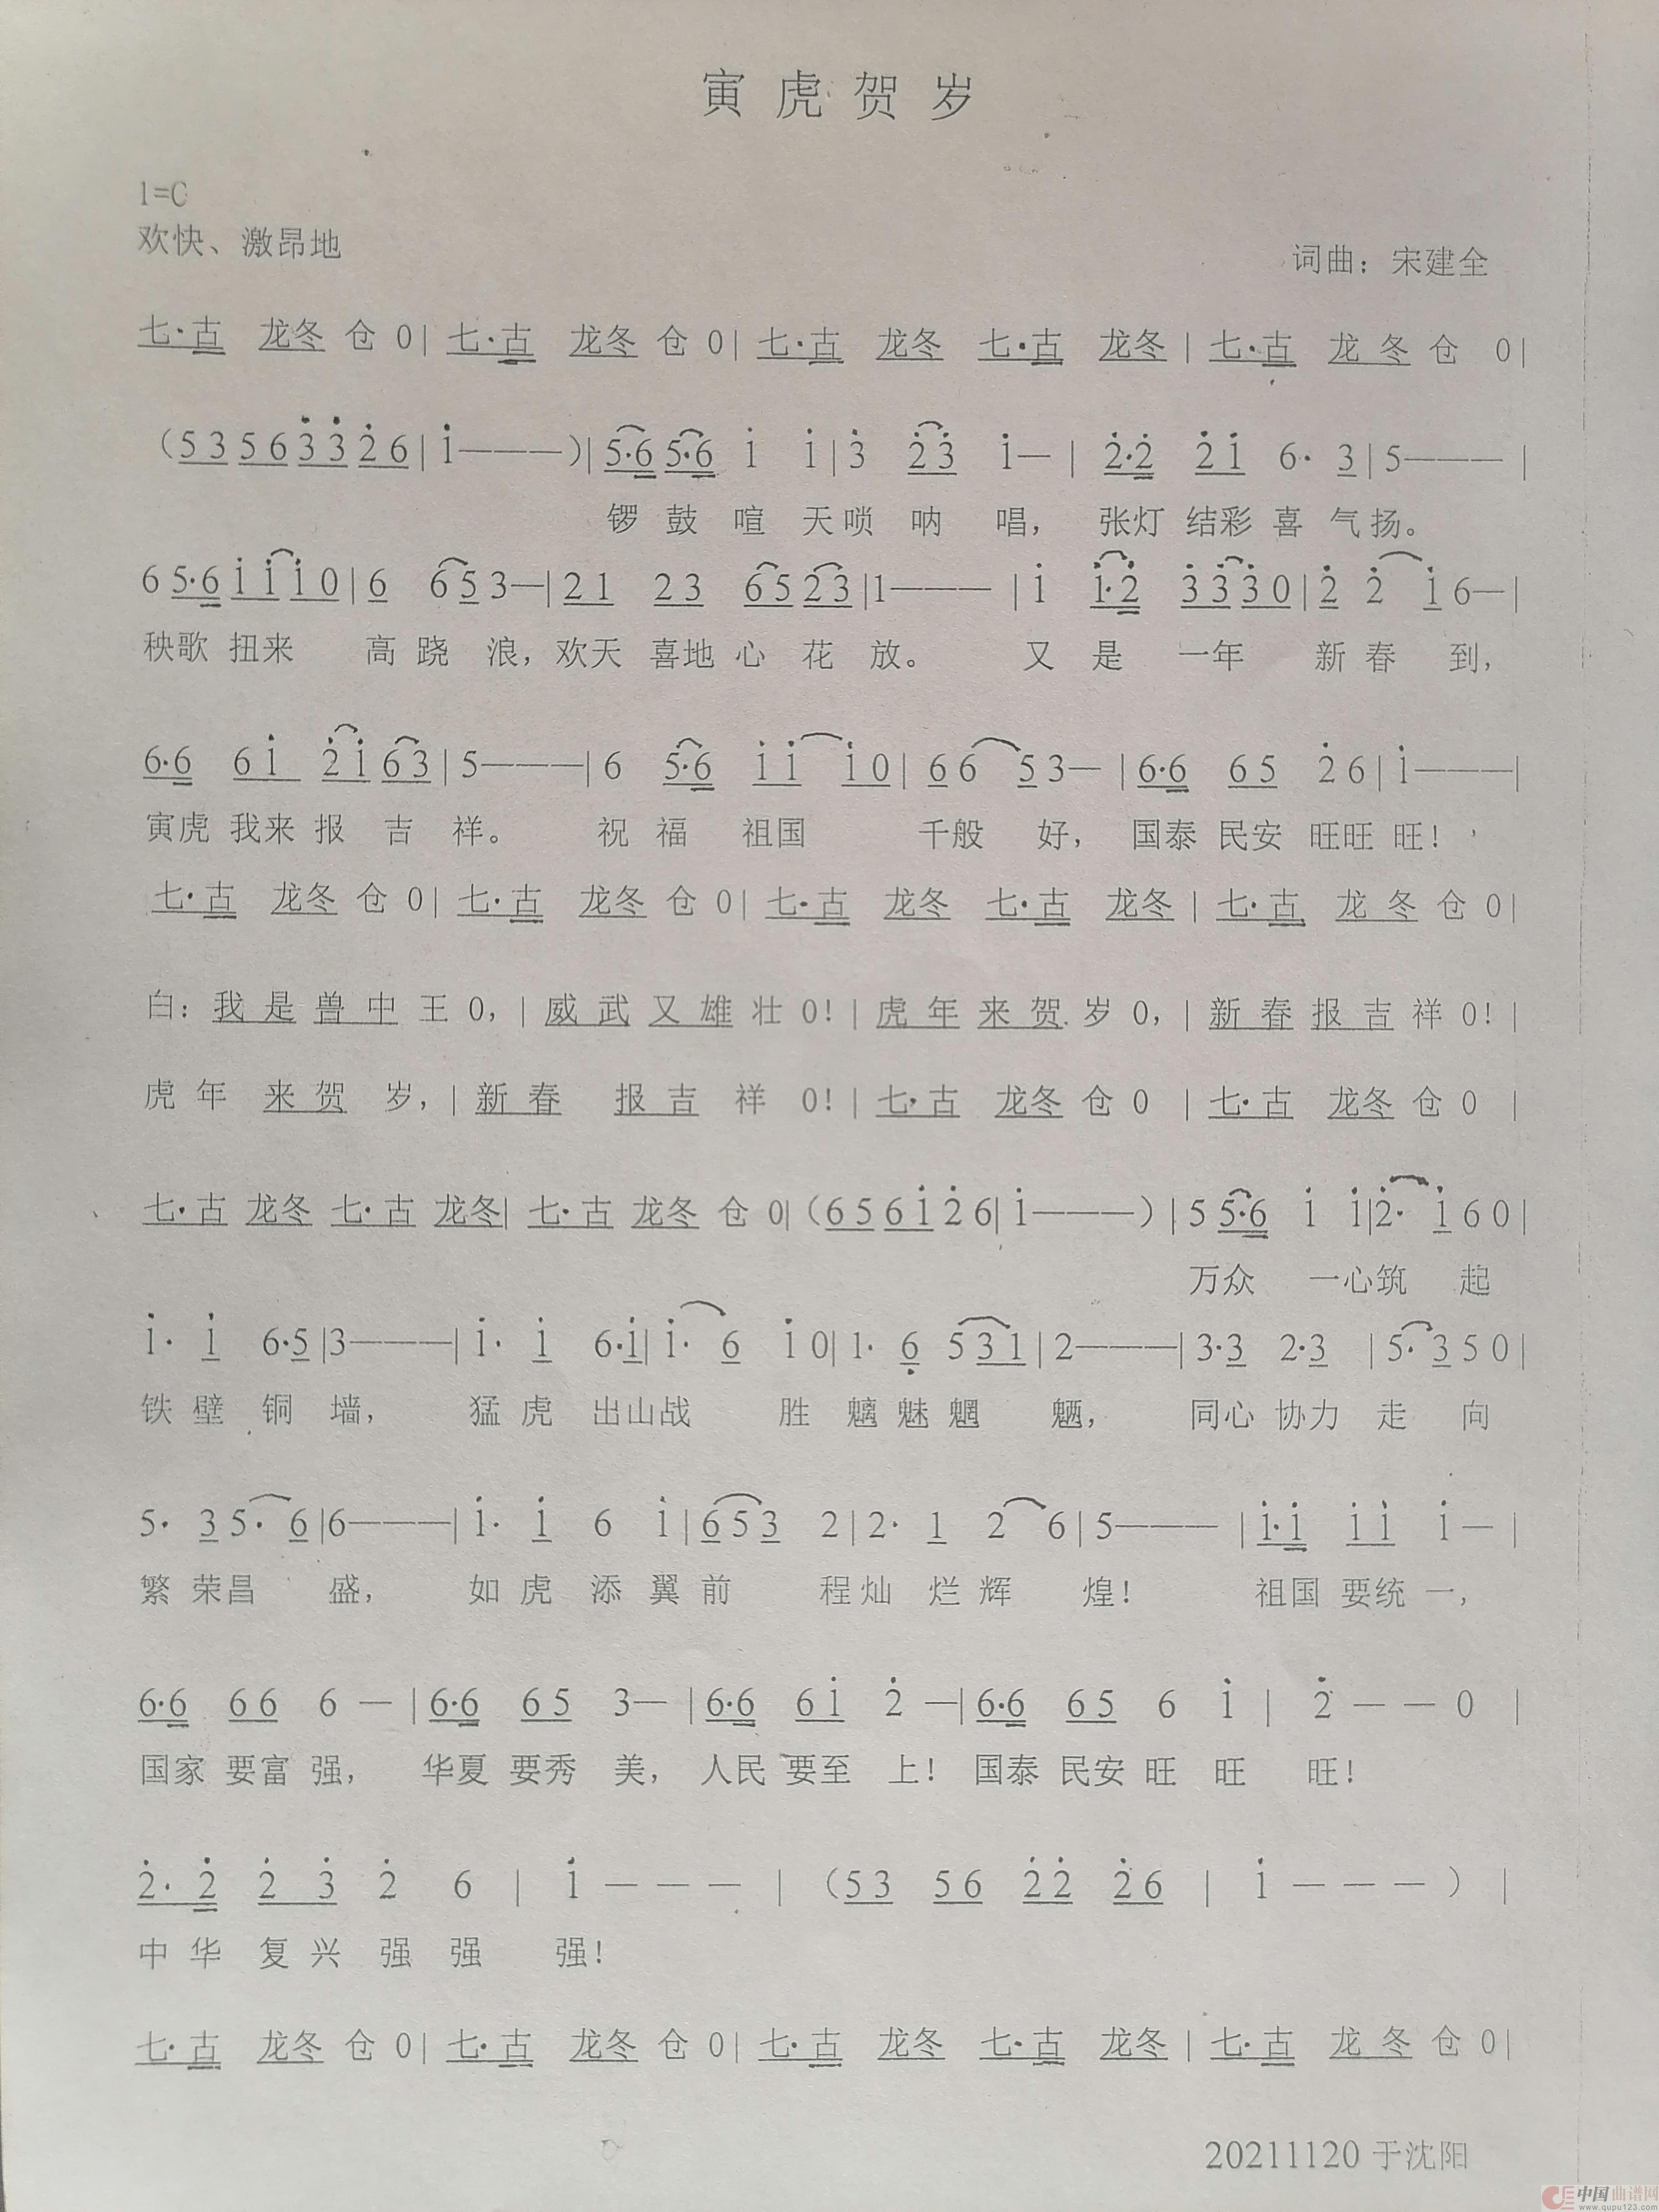 寅虎贺岁
1=C
欢快、激昂地
词曲：宋建全
七·古 龙冬 仓 0| 七·古 龙冬 仓 0| 七·古 龙冬 七·古 龙冬 | 七·古 龙 冬 仓 0|
（5 3 5 6 3̇ 3̇ 2̇ 6 | 1̇———）| 5·6 5·6 1̇ 1̇ | 3̇ 2̇3̇ 1̇— | 2̇·2̇ 2̇1̇ 6· 3 | 5——— |
锣 鼓 喧 天 唢 呐 唱， 张灯 结彩 喜 气 扬。
6 5·6 1̇ 1̇ 1̇ 0 | 6 6 5 3—| 2 1 2 3 6 5 2 3 |1——— | 1̇ 1̇·2̇ 3̇ 3̇ 3̇ 0 | 2̇ 2̇ 1̇ 6—|
秧歌 扭来 高 跷 浪，欢天 喜地 心 花 放。 又 是 一年 新 春 到，
6·6 6 1̇ 2̇ 1̇ 6 3 | 5———| 6 5·6 1̇ 1̇ 1̇ 0 | 6 6 5 3— | 6·6 6 5 2̇ 6 | 1̇———|
寅虎 我来 报 吉 祥。 祝 福 祖国 千般 好， 国泰 民安 旺旺 旺！
七·古 龙冬 仓 0| 七·古 龙冬 仓 0| 七·古 龙冬 七·古 龙冬 | 七·古 龙 冬 仓 0|
白：我 是 兽 中 王 0，| 威 武 又 雄 壮 0！| 虎 年 来 贺 岁 0，| 新 春 报 吉 祥 0！|
虎 年 来 贺 岁，| 新 春 报 吉 祥 0！| 七·古 龙冬 仓 0 | 七·古 龙冬 仓 0 |
七·古 龙冬 七·古 龙冬| 七·古 龙冬 仓 0|（6 5 6 1̇ 2 6| 1̇———）| 5 5·6 1̇ 1̇|2̇· 1̇ 6 0 |
万众 一心筑 起
1̇· 1̇ 6·5 |3———| 1̇· 1̇ 6·1̇| 1̇· 6 1̇ 0| 1· 6̣ 5 3 1 | 2———| 3·3 2·3 | 5· 3 5 0 |
铁 壁 铜 墙， 猛 虎 出山战 胜 魑 魅 魍 魉， 同心 协力 走 向
5· 3 5· 6 |6———| 1̇· 1̇ 6 1̇ | 6 5 3 2 | 2· 1 2 6 | 5——— | 1̇·1̇ 1̇ 1̇ 1̇ — |
繁 荣昌 盛， 如 虎 添 翼 前 程灿 烂 辉 煌！ 祖国 要统 一，
6·6 6 6 6 — | 6·6 6 5 3— | 6·6 6 1̇ 2̇ —| 6·6 6 5 6 1̇ | 2̇ — — 0 |
国家 要富 强， 华夏 要秀 美， 人民 要至 上！ 国泰 民安 旺 旺 旺！
2̇· 2̇ 2̇ 3̇ 2̇ 6 | 1̇ — — — |（5 3 5 6 2̇ 2̇ 2̇ 6 | 1̇ — — — ）|
中 华 复 兴 强 强 强！
七·古 龙冬 仓 0| 七·古 龙冬 仓 0| 七·古 龙冬 七·古 龙冬 | 七·古 龙 冬 仓 0|
20211120 于沈阳
中国曲谱网
www.qupu123.com